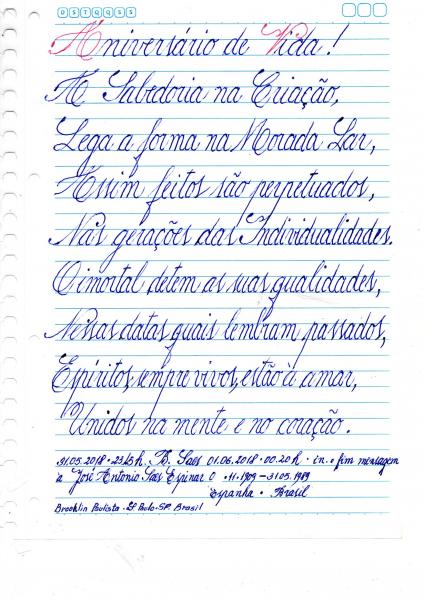 D S T Q Q S S
Aniversário de Vida!
A Sabedoria na Criação,
Lega a forma na Morada Lar,
Assim feitos são perpetuados,
Nas gerações das Individualidades.
O imortal detem as suas qualidades,
Nessas datas quais lembram passados,
Espíritos, sempre vivos, estão à amar,
Unidos na mente e no coração.
31.05.2018 . 23:15h. B. Saes 01.06.2018 . 00.20h . in. e fim mensagem
a José Antonio Saes Espinar . 11 . 1909 - 31.05.1989
Espanha . Brasil
Brooklin Paulista . S. Paulo. SP. Brasil